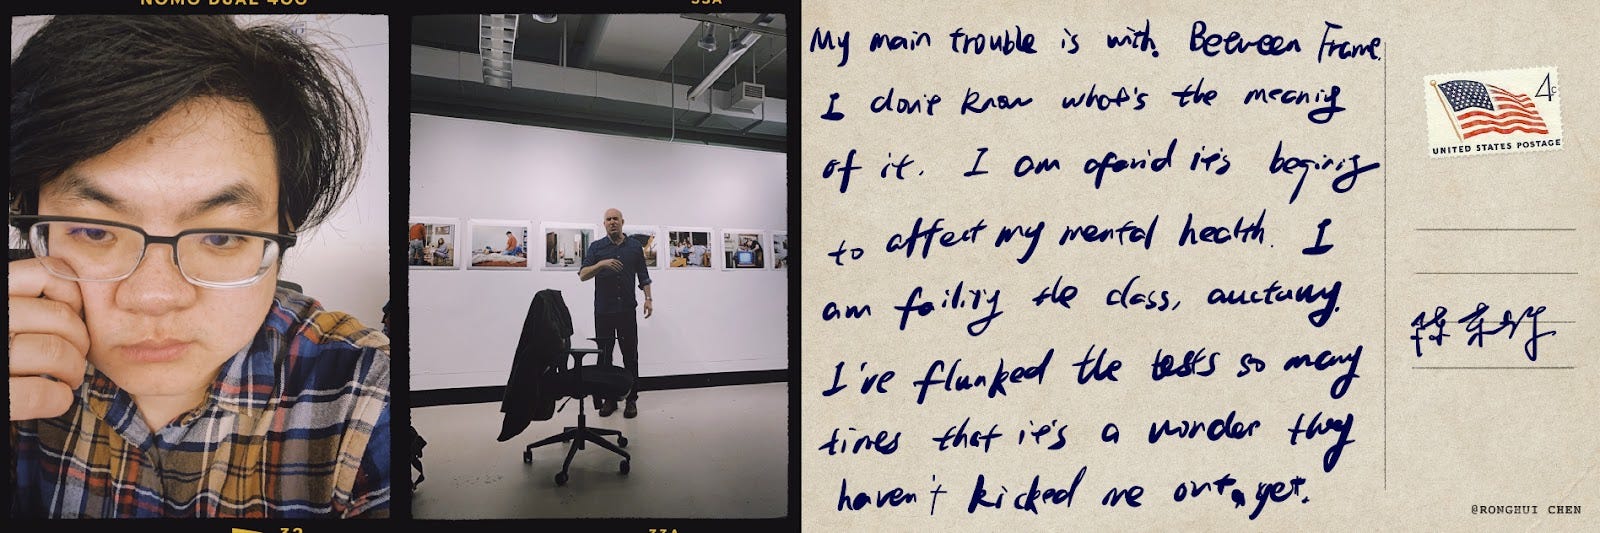 NOMO DUAL 400
33A
My main trouble is with. Between Frame.
I don't know what's the meaning
of it. I am afarid it's begining
to affect my mental health. I
am failing the class,
I've flunked the tests so many
times that it's a wonder they
haven't kicked me out, yet.
4c
UNITED STATES POSTAGE
陈荣辉
@RONGHUI CHEN
32
33A